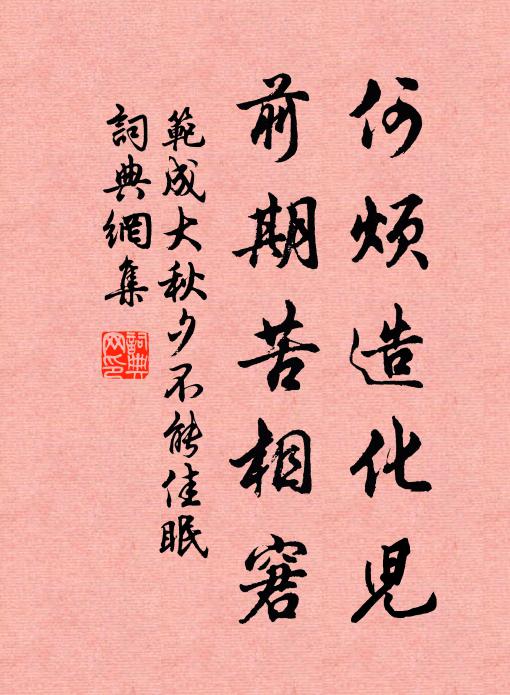 何煩造化兒
前期苦相窘
範成大秋夕不能佳眠
詞典網集
詞典網印